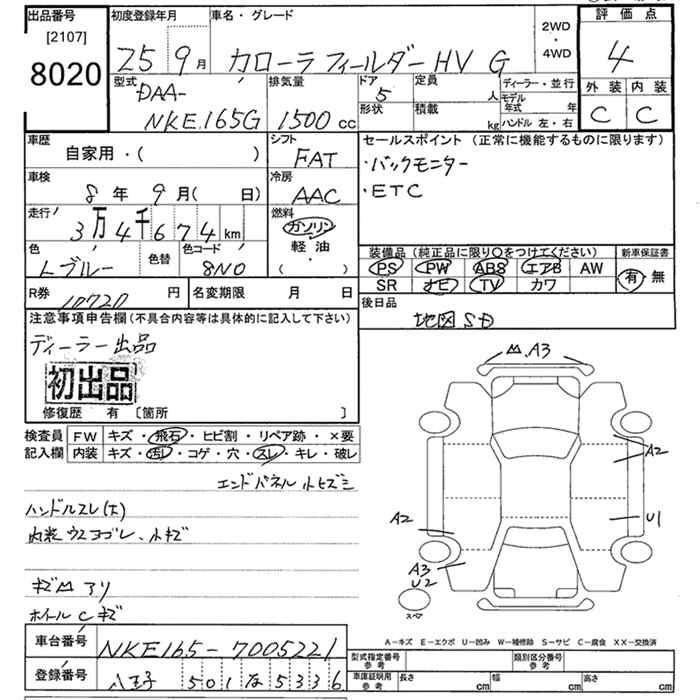 出品番号
[2107]
8020
初度登録年月
25年9月
車名・グレード
カローラフィールダーHV G
2WD
・
4WD
評価点
4
外装 内装
C C
型式
DAA-
NKE165G
排気量
1500 cc
ドア
5
形状
定員
人
積載
kg
ディーラー・並行
モデル
年式 年
ハンドル 左・右
車歴
自家用・( )
シフト
FAT
車検
8年9月( 日)
冷房
AAC
走行
3万4千674km
燃料
ガソリン
軽・油
・
( )
色
Lブルー
色替
色コード
8N0
R券
10720円
名変期限 月 日
セールスポイント(正常に機能するものに限ります)
・バックモニター
・ETC
装備品(純正品に限り○をつけてください)
PS PW ABS エアB AW
SR ナビ TV カワ
新車保証書
有・無
後日品
地図SD
注意事項申告欄(不具合内容等は具体的に記入して下さい)
ディーラー出品
初出品
修復歴 有〔箇所 〕
検査員
記入欄
FW キズ・飛石・ヒビ割・リペア跡・×要
内装 キズ・汚レ・コゲ・穴・スレ・キレ・破レ
エンドパネル小ヒズミ
ハンドルスレ(大)
内装ウスヨゴレ、小キズ
キズ凹アリ
ホイールCキズ
凹.A3
A2
U1
A2
A3
U2
スペア
A-キズ E-エクボ U-凹み W-補修跡 S-サビ C-腐食 XX-交換済
車台番号
NKE165-7005221
登録番号
八王子501な5336
型式指定番号
参考
類別区分番号
参考
車庫証明用
参考
長さ cm
幅 cm
高さ cm